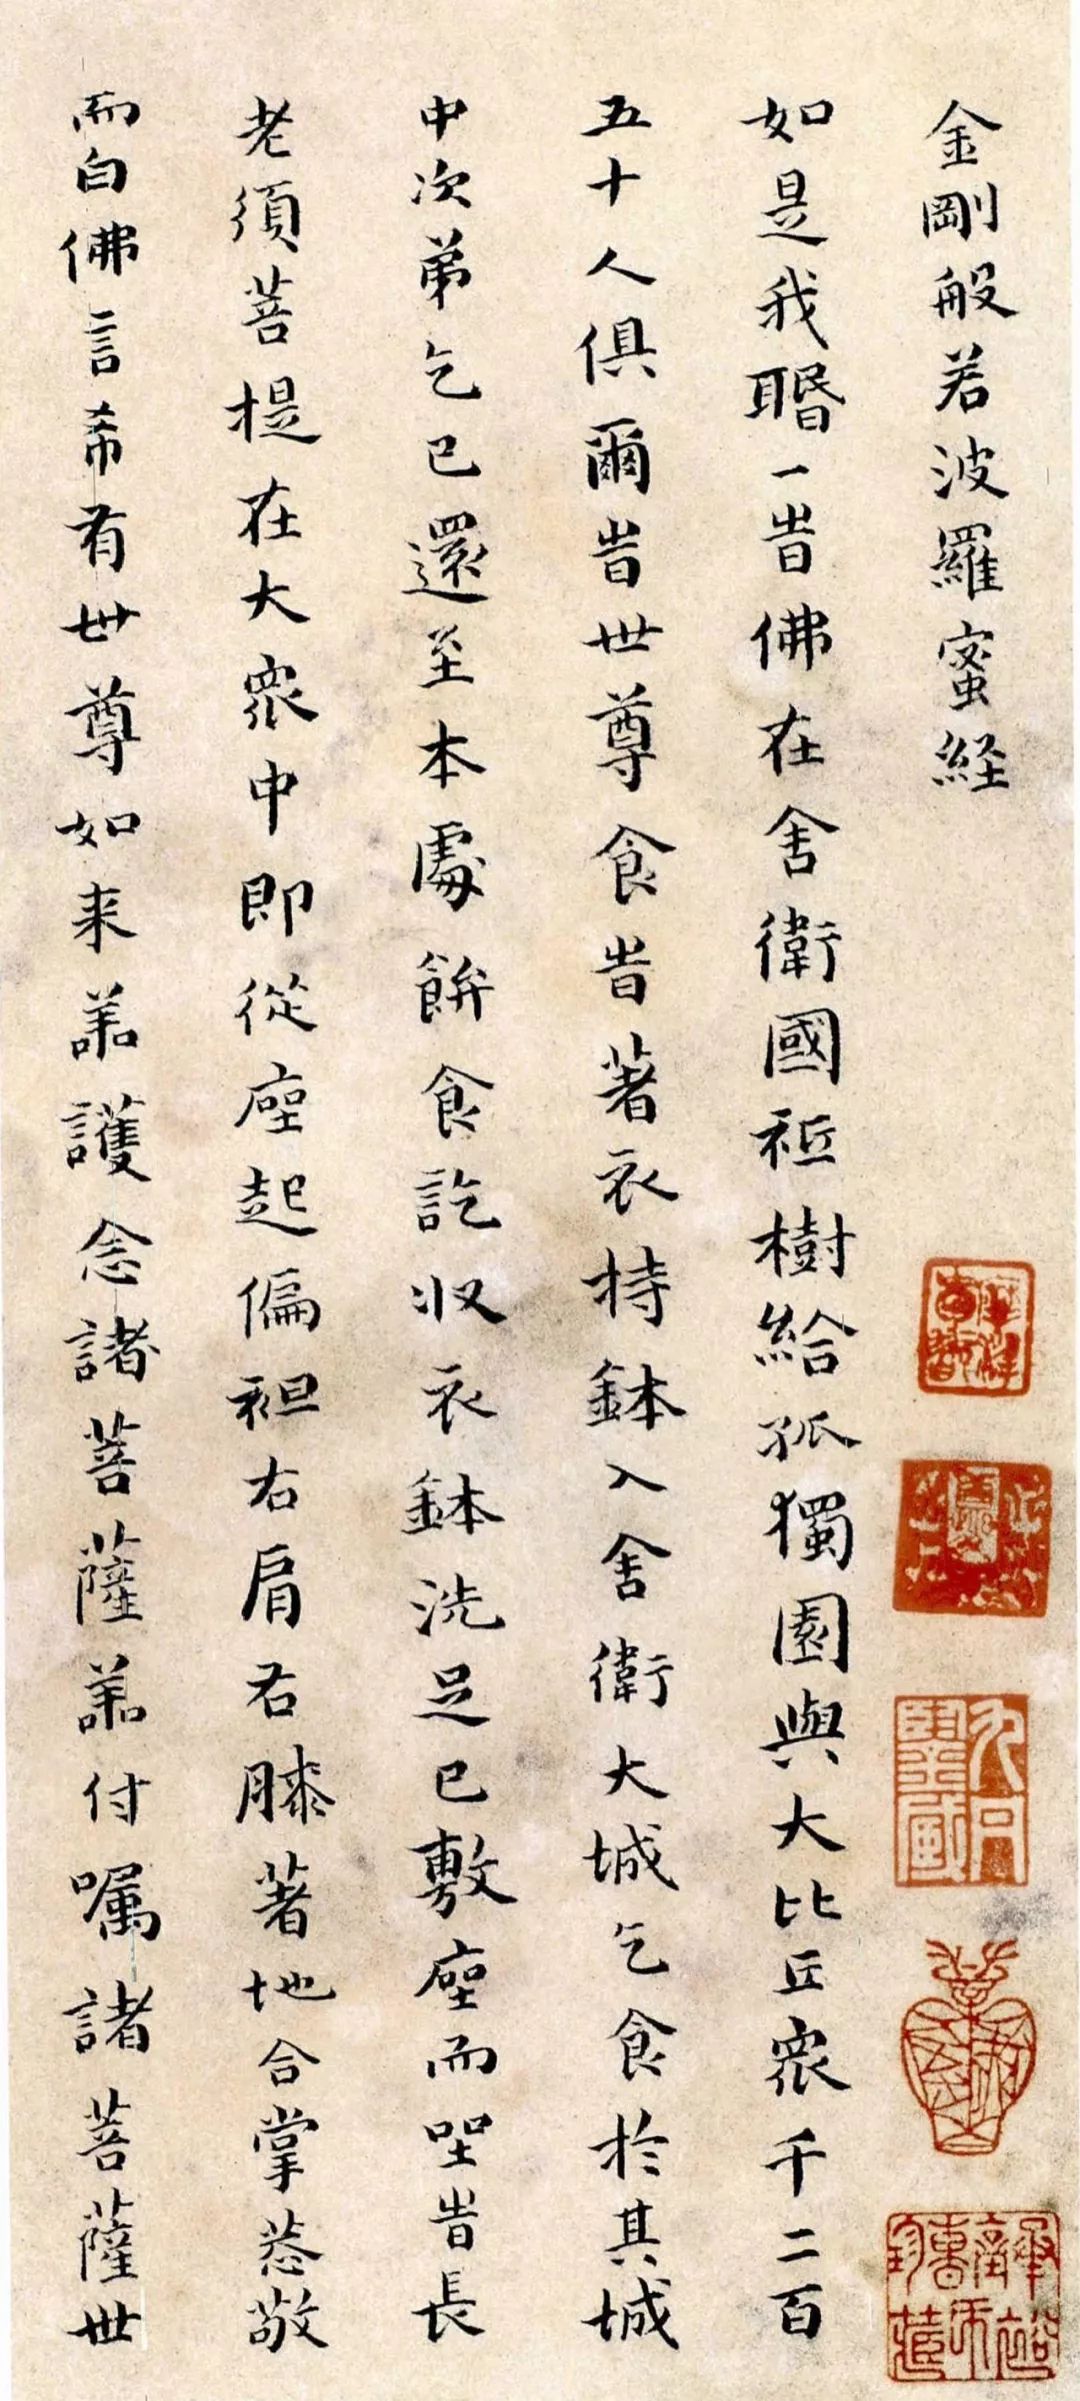 金剛般若波羅蜜経
如是我聞一旹佛在舍衛國祇樹給孤獨園與大比丘衆千二百
五十人俱爾旹世尊食旹著衣持鉢入舍衛大城乞食於其城
中次弟乞已還至本處飯食訖收衣鉢洗足已敷座而坐旹長
老須菩提在大衆中即從座起偏袒右肩右膝著地合掌恭敬
而白佛言希有世尊如来善護念諸菩薩善付嘱諸菩薩世